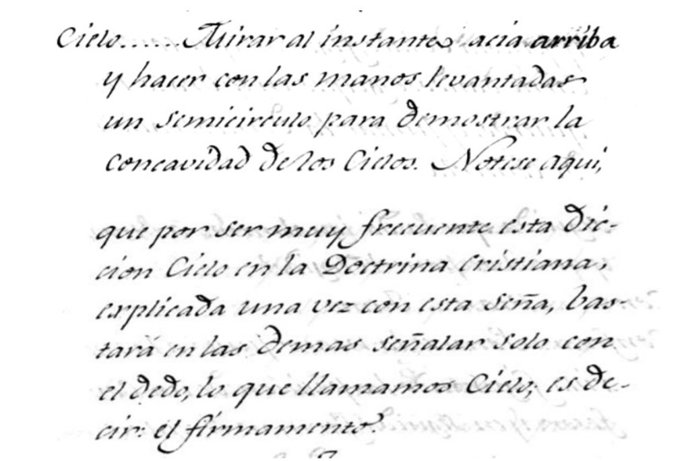 Cielo...... Mirar al instante acia arriba
y hacer con las manos levantadas
un semicirculo para demostrar la
concavidad de los Cielos. Notese aqui,
que por ser muy frecuente esta dic-
cion Cielo en la Doctrina cristiana,
explicada una vez con esta seña, bas-
tará en las demas señalar solo con
el dedo, lo que llamamos Cielo; es de-
cir: el firmamento.